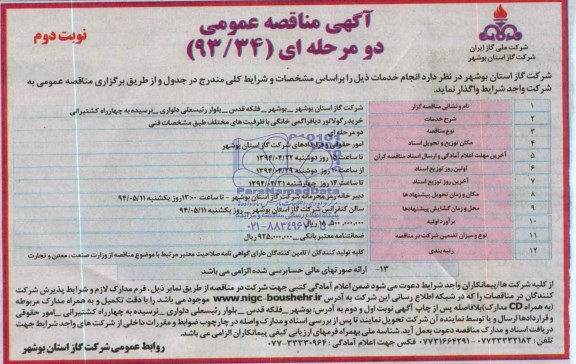 آگهی مناقصه عمومی
دو مرحله ای (۹۳/۳۴)
نوبت دوم
شرکت ملی گاز ایران
شرکت گاز استان بوشهر
شرکت گاز استان بوشهر در نظر دارد انجام خدمات ذیل را براساس مشخصات و شرایط کلی مندرج در جدول و از طریق برگزاری مناقصه عمومی به
شرکت واجد شرایط واگذار نماید.
۱ نام و نشانی مناقصه گزار شرکت گاز استان بوشهر _ بوشهر _ فلکه قدس _ بلوار رئیسعلی دلواری _ نرسیده به چهارراه کشتیرانی
۲ شرح خدمات خرید رگولاتور دیافراگمی خانگی با ظرفیت های مختلف طبق مشخصات فنی
۳ نوع مناقصه دو مرحله ای
۴ مکان توزیع و تحویل اسناد امور حقوقی و قراردادهای شرکت گاز استان بوشهر
۵ آخرین مهلت اعلام آمادگی و ارسال اسناد مناقصه گران تا ساعت ۱۵ روز دوشنبه ۱۳۹۴/۰۴/۲۲
۶ اولین روز توزیع اسناد از ساعت ۱۰ روز دوشنبه ۱۳۹۴/۰۳/۲۹
۷ آخرین روز توزیع اسناد تا ساعت ۱۴ روز چهارشنبه ۱۳۹۴/۰۳/۳۱
۸ مکان و زمان تحویل پیشنهاد ها دبیر خانه رمز محرمانه شرکت گاز استان بوشهر - تا ساعت ۱۳:۰۰ روز یکشنبه ۹۴/۰۵/۱۱
۹ محل و زمان گشایش پیشنهادها سالن کنفرانس شرکت گاز استان بوشهر _ روز یکشنبه ۹۴/۰۵/۱۱
۱۰ برآورد اولیه ۱۸،۵۰۰،۰۰۰،۰۰۰ ریال
۱۱ نوع و میزان تضمین شرکت در مناقصه ضمانتنامه معتبر بانکی _ ۹۲۵،۰۰۰،۰۰۰ ریال
۱۲ رتبه بندی کلیه تولید کنندگان / تامین کنندگان دارای گواهی نامه صلاحیت معتبر مرتبط با موضوع مناقصه از وزارت صنعت ، معدن و تجارت
۱۳- ارائه صورتهای مالی حسابرسی شده الزامی می باشد
از کلیه شرکت ها/پیمانکاران واجد شرایط دعوت می شود ضمن اعلام آمادگی کتبی جهت شرکت در مناقصه از طریق نمابر ذیل ، فرم مدارک لازم و شرایط پذیرش شرکت
کنندگان در مناقصات را که در شبکه اطلاع رسانی این شرکت به آدرس www.nigc-boushehr.ir موجود می باشد را با دقت تکمیل و به همراه مدارک مربوطه
(به همراه CD مدارک) بلافاصله پس از چاپ آگهی نوبت اول و دوم به آدرس: بوشهر _ فلکه قدس _ بلوار رئیسعلی دلواری _ نرسیده به چهارراه کشتیرانی _ امور حقوقی
و قراردادها ارسال و یا توسط نماینده آن شرکت تحویل نمایند تا پس از بررسی اسناد و مدارک واصله در چارچوب ضوابط و مقررات داخلی از شرکت های واجد شرایط جهت
دریافت اسناد و مدارک مناقصه دعوت بعمل آید. شناسه ملی بهمراه فرمهای ارزیابی کیفی پیمانکاران الزامی می باشد.
تلفن : ۰۷۷۳۳۳۳۲۱۸۳ - ۰۷۷۳۱۶۶۴۲۹۱ فکس جهت اعلام آمادگی : ۰۷۷-۳۳۳۳۰۹۶۴
روابط عمومی شرکت گاز استان بوشهر
ParsNamadData
۰۲۱-۸۸۳۴۹۶۷۰-۵